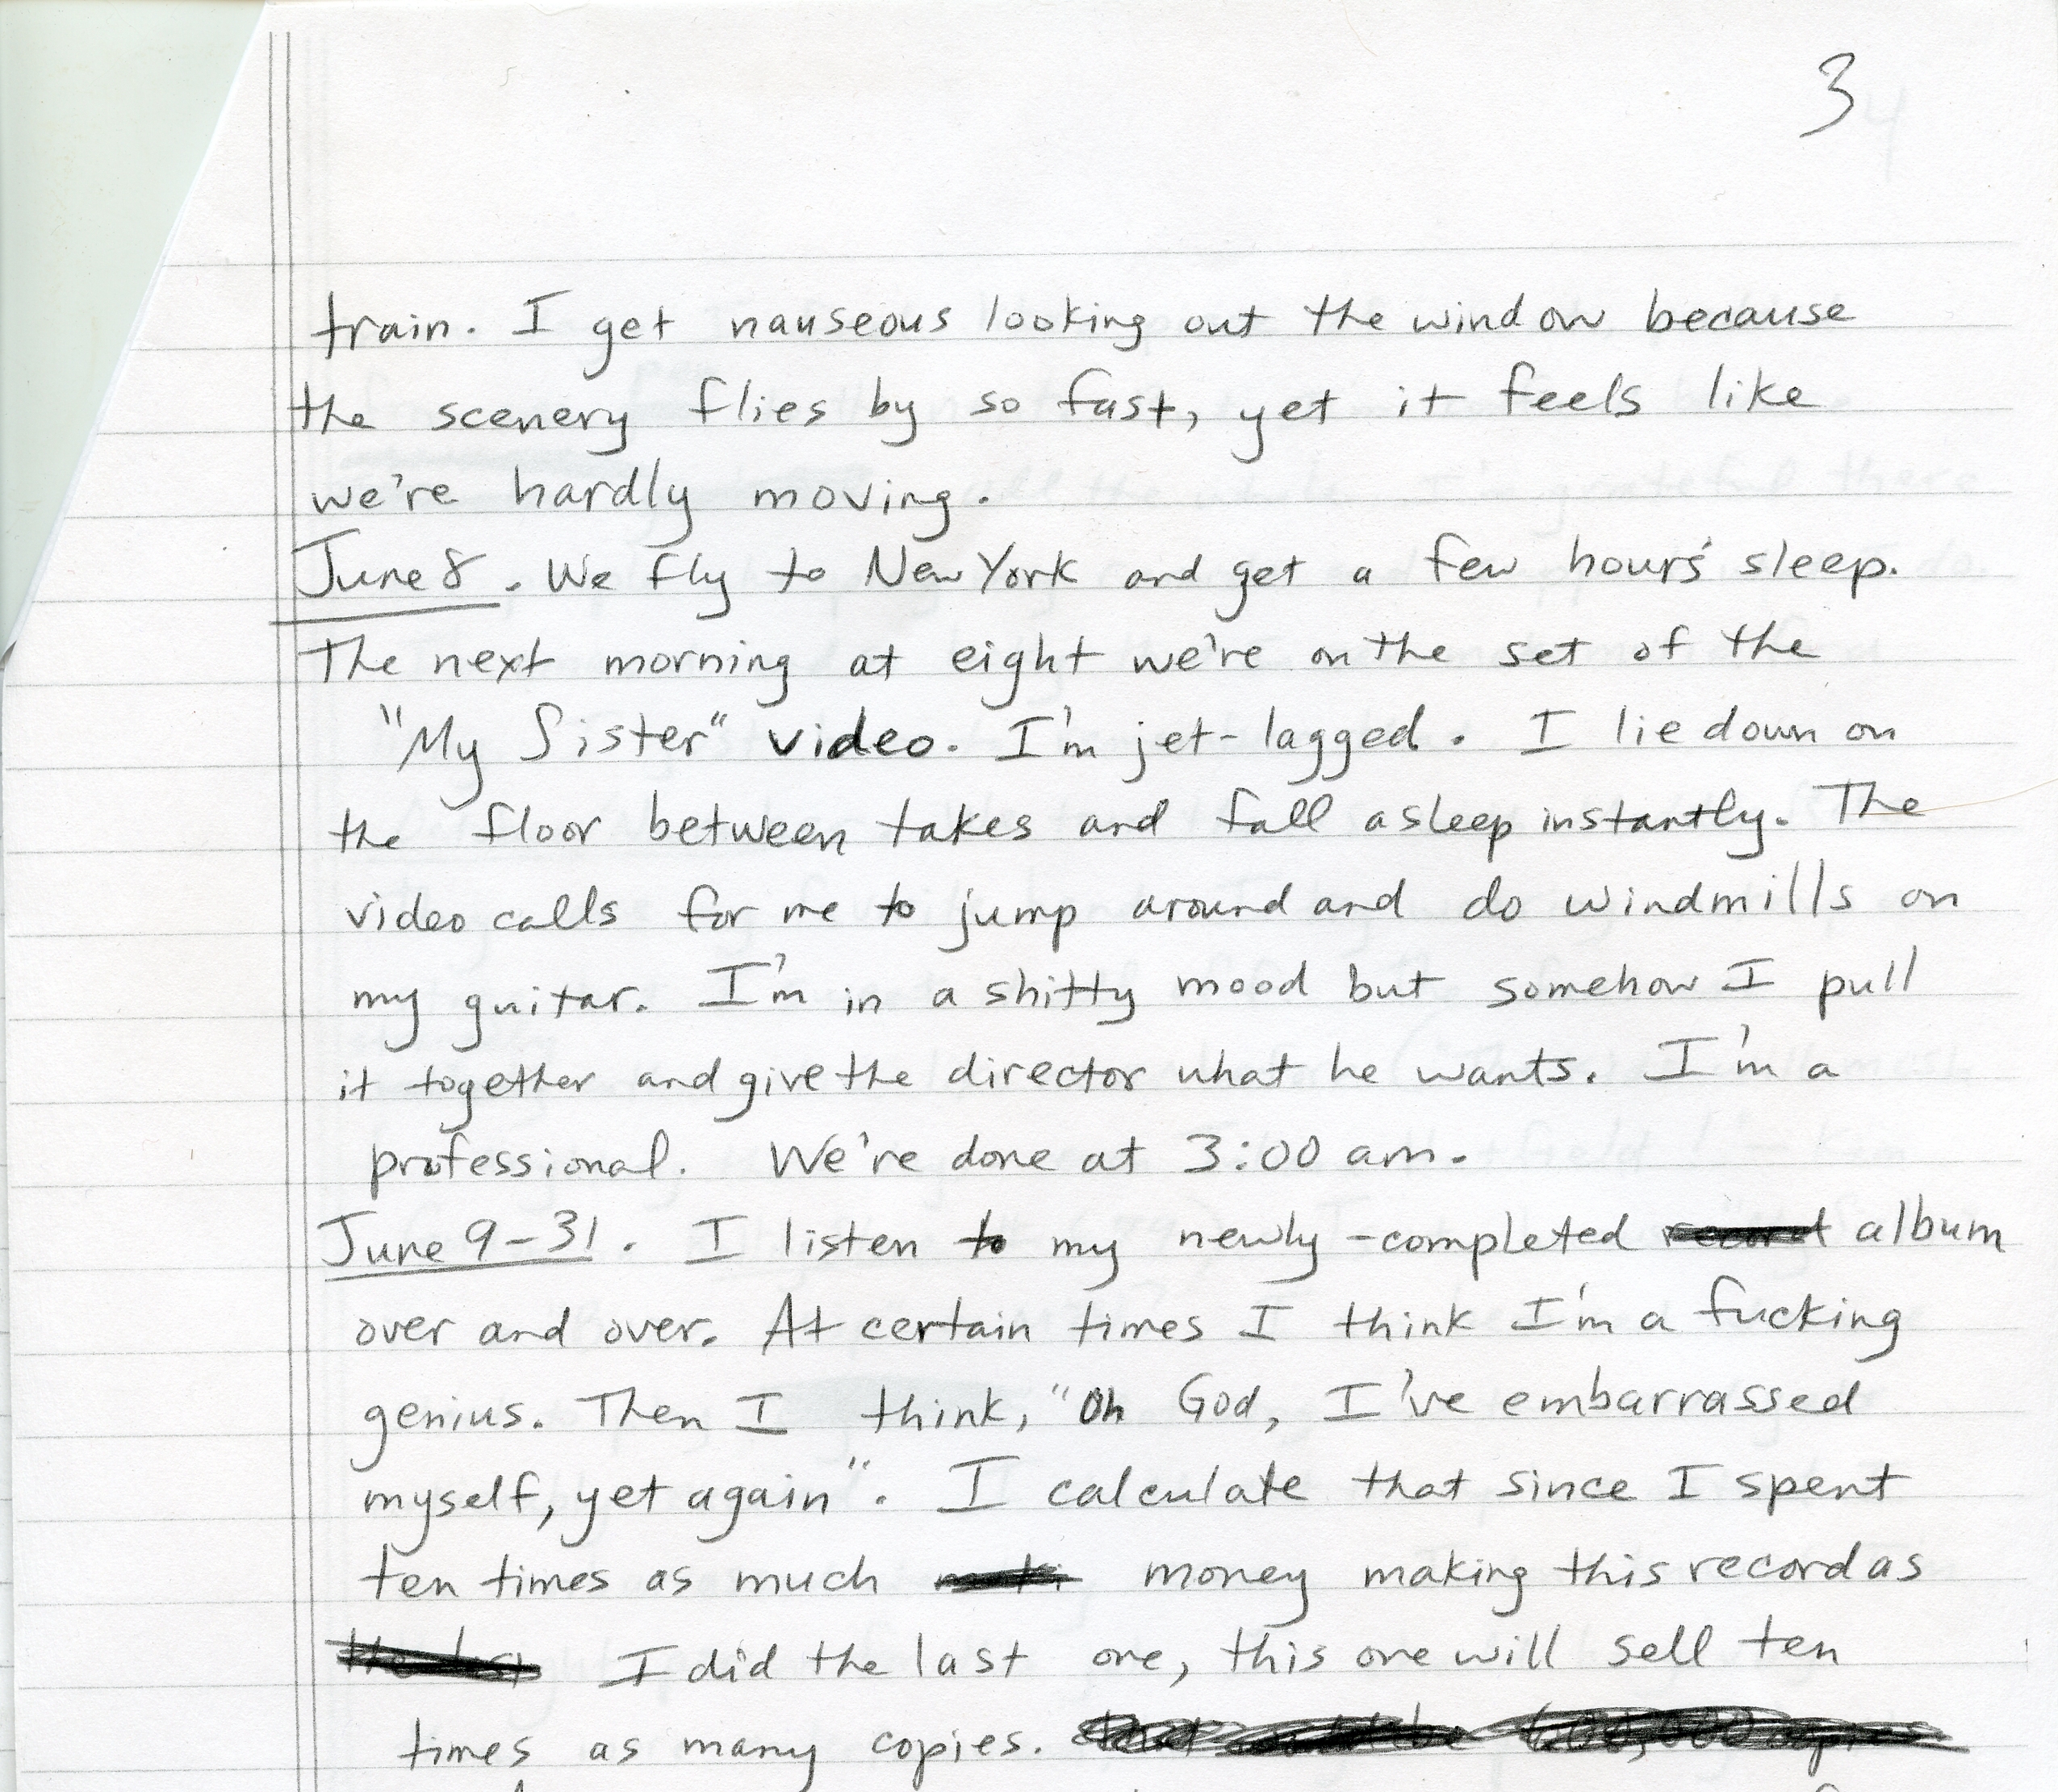 3
train. I get nauseous looking out the window because
the scenery flies by so fast, yet it feels like
we're hardly moving.
June 8. We fly to New York and get a few hours' sleep.
The next morning at eight we're on the set of the
"My Sister" video. I'm jet-lagged. I lie down on
the floor between takes and fall asleep instantly. The
video calls for me to jump around and do windmills on
my guitar. I'm in a shitty mood but somehow I pull
it together and give the director what he wants. I'm a
professional. We're done at 3:00 am.
June 9-31. I listen to my newly-completed record album
over and over. At certain times I think I'm a fucking
genius. Then I think, "Oh God, I've embarrassed
myself, yet again". I calculate that since I spent
ten times as much money making this record as
I did the last one, this one will sell ten
times as many copies.